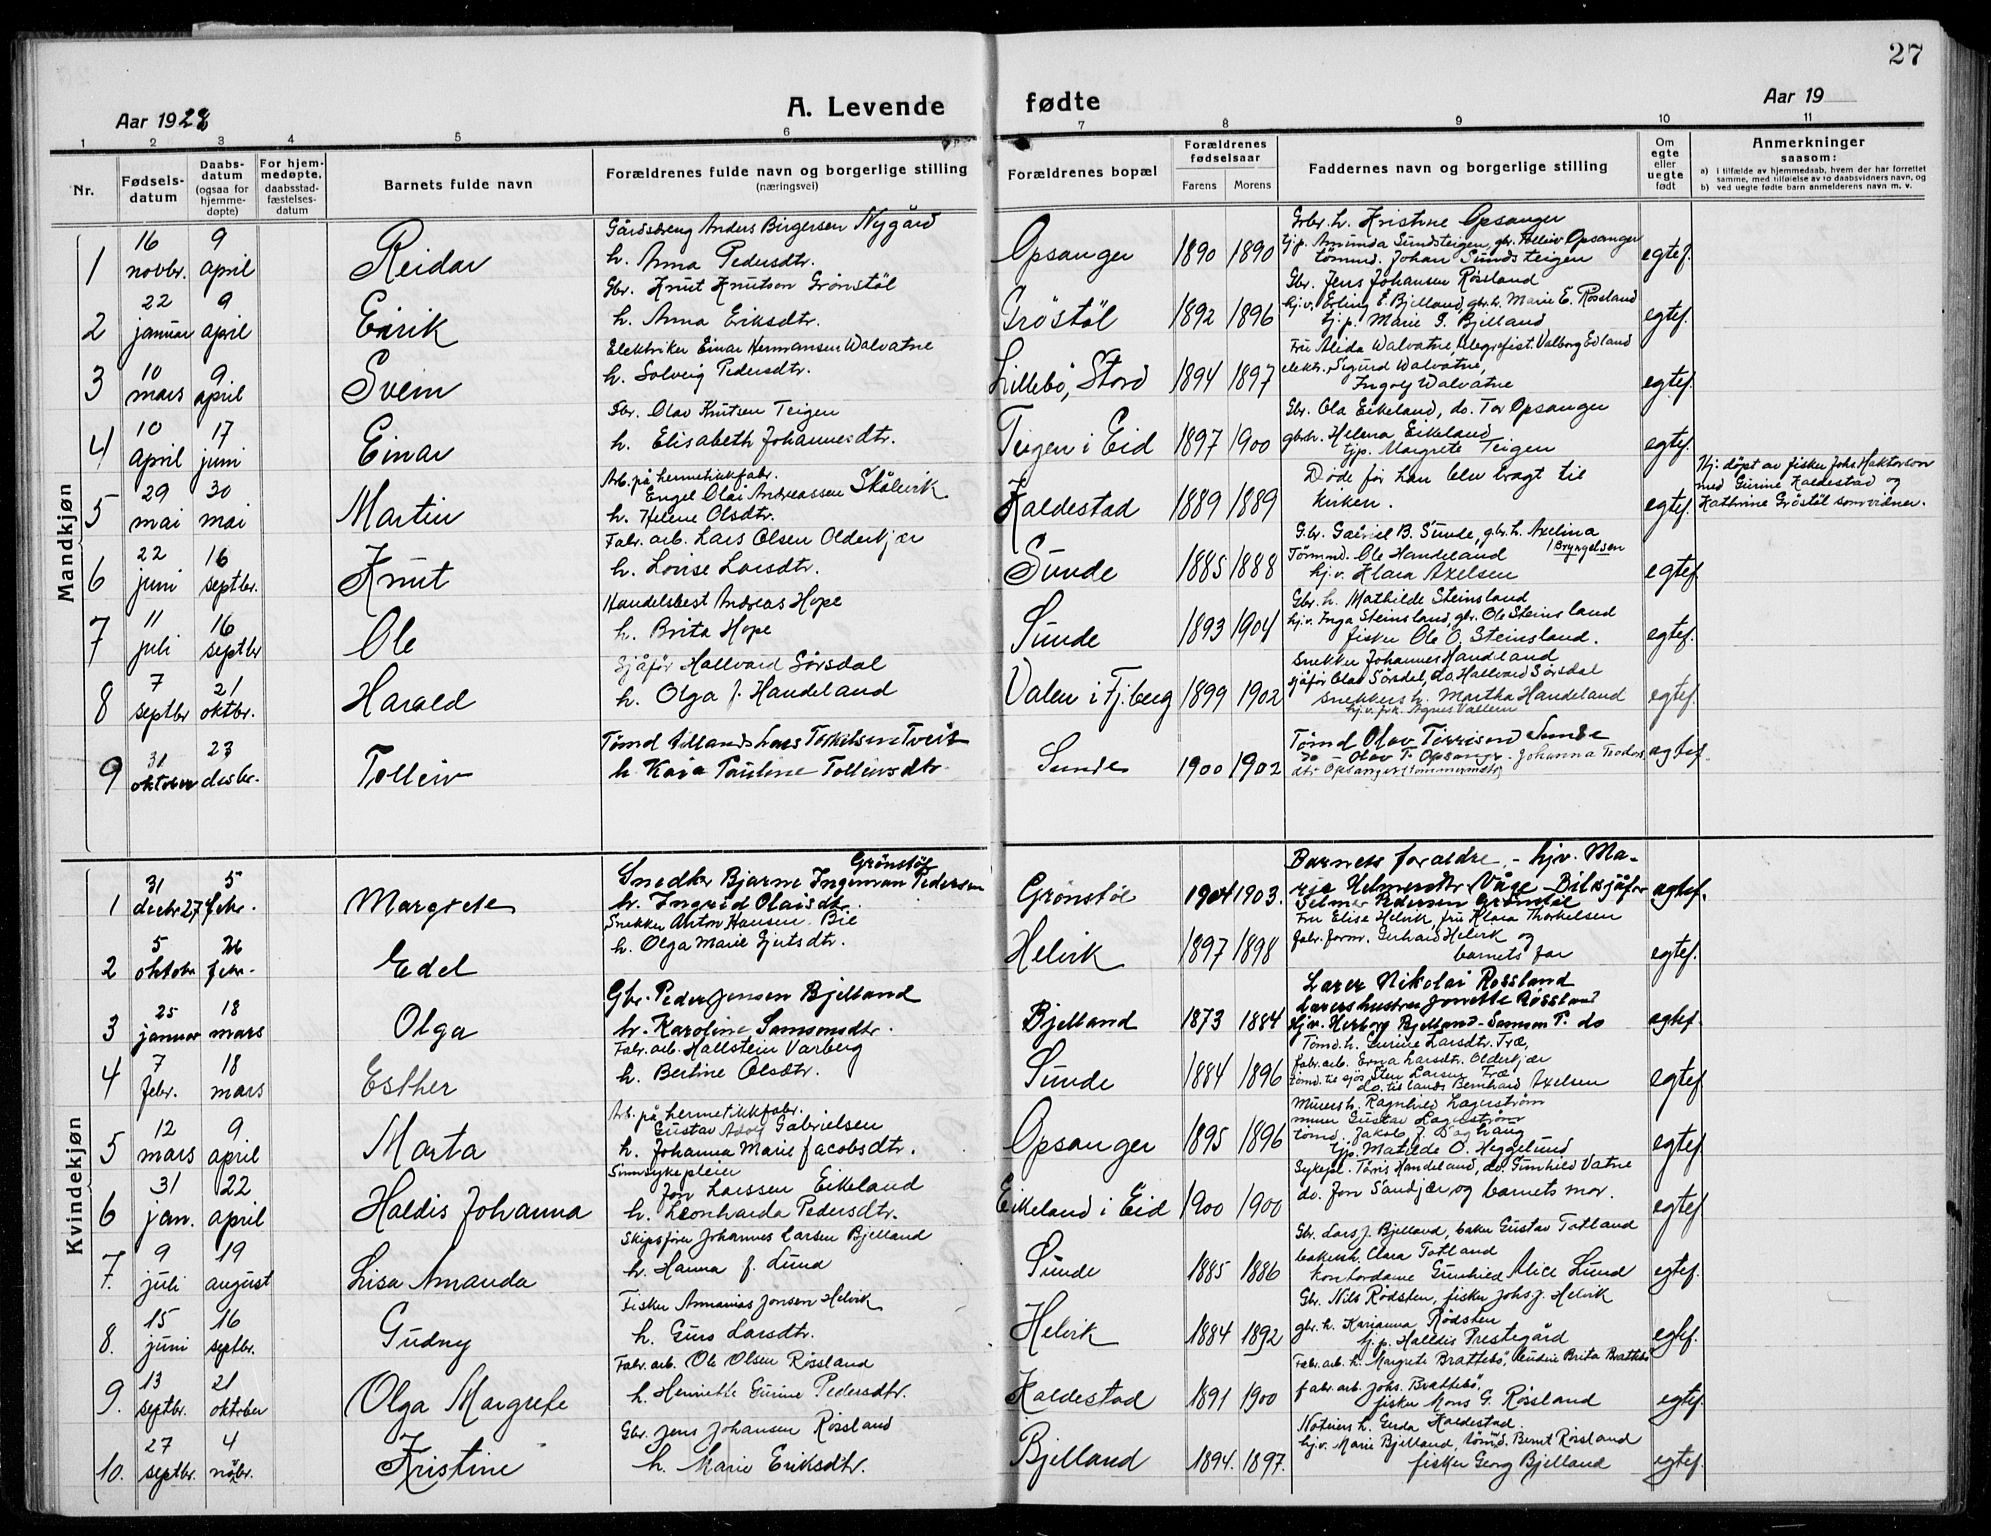 27
Aar 1928
A. Levende fødte
Aar 19
1 2 3 4 5 6 7 8 9 10 11
Nr.
Fødsels-datum
Daabs-datum (ogsaa for hjemme-døpte)
For hjem-medøpte, daabsstad-fæstelses-datum
Barnets fulde navn
Forældrenes fulde navn og borgerlige stilling (næringsvei)
Forældrenes bopæl
Forældrenes fødselsaar
Farens Morens
Faddernes navn og borgerlige stilling
Om egte eller uegte født
Anmerkninger saasom:
a) i tilfælde av hjemmedaab, hvem der har forrettet samme, med tilføielse av to daabsvidners navn, og
b) ved uegte fødte barn anmelderens navn m. v.
Mandkjøn
1 16 novbr. 9 april Reidar
Gårdsdreng Anders Birgersen Nygård
h. Anna Pedersdtr.
Opsanger 1890 1890
Gbr. h. Kristine Opsanger
tj.p. Amunda Sundsteigen, gbr. Tolleiv Opsanger
tømmd. Johan Sundsteigen
egtef.
2 22 januar 9 april Eirik
Gbr. Knut Knutson Grønstøl
h. Anna Eriksdtr.
Grøstøl 1892 1896
Gbr. Jens Johansen Røssland
hj.v. Erling E. Bjelland, gbr. h. Marie E. Røssland
tj.p. Marie G. Bjelland
egtef.
3 10 mars 9 april Svein
Elektriker Einar Hermansen Walvatne
h. Solveig Pedersdtr.
Lillebø, Stord 1894 1897
Fru Alida Walvatne, telegrafist. Valborg Edland
elektr. Sigurd Walvatne,
Ingolf Walvatne
egtef.
4 10 april 17 juni Einar
Gbr. Olav Knutsen Teigen
h. Elisabeth Johannesdtr.
Teigen i Eid 1897 1900
Gbr. Ola Eikeland, do. Tor Opsanger
gbr.h. Helena Eikeland
tjp. Margrete Teigen
egtef.
5 29 mai 30 mai Martin
Arb. på hermetikkfabr.
Engel Olai Andreassen Skålevik
h. Helene Olsdtr.
Kaldestad 1889 1889
Døde før han blev bragt til
kirken.
egtef.
Hj: døpt av fisker Johs Haktorson
med Gurine Kaldestad og
Kathrine Grøstøl som vidner.
6 22 juni 16 septbr. Knut
Fabr. arb. Lars Olsen Olderkjær
h. Lovise Larsdtr.
Sunde 1885 1888
Gbr. Gabriel B. Sunde, gbr. h. Axelina
/Bryngelsen
Tømmd. Ole Handeland
hj.v. Klara Axelsen
egtef.
7 11 juli 16 septbr Ole
Handelsbest Andreas Hope
h. Brita Hope
Sunde 1893 1904
Gbr. h. Mathilde Steinsland
hj.v. Inga Steinsland, gbr. Ole Steinsland
fisker Ole O. Steinsland.
egtef.
8 7 septbr 21 oktbr. Harald
Sjåfør Hallvard Sørsdal
h. Olga f. Handeland
Valen i Fjberg 1899 1902
Snekker Johannes Handeland
sjåfør Olav Sørsdal, do. Hallvard Sørsdal
snekkers h. Martha Handeland
hj.v. frk. Agnes Vallem
egtef.
9 31 oktober 23 desbr. Tolleiv
Tømd tillands Lars Torkilsen Tveit
h. Kaia Pauline Tolleivsdtr
Sunde 1900 1902
Tømd Olav Torrisend Sunde
do - Olav T. Opsanger - Johanna Teodors
dtr Opsanger (tømmermstr)
egtef.
Kvindekjøn
1 31 decbr 27 5 febr. Margrete
Grønstøl
Snedker Bjarne Ingeman Pedersen
h. Ingrid Olaisdtr.
Grønstøl 1904 1903.
Barnets forældre - hjv. Ma-
rie Helmersdtr Våge - Bilsjåfør
Selmer Pedersen Grønstøl
egtef.
2 5 oktobr 26 febr. Edel
Snekker Anton Hansen Bie
h. Olga Marie Gjertsdtr.
Helvik 1897 1898
Fru Elise Helvik, fru Klara Thorkelsen
fabr.form. Gerhard Helvik og
barnets far
egtef.
3 25 januar 18 mars Olga
Gbr. Peder Jensen Bjelland
h. Karoline Samsonsdtr.
Bjelland 1873 1884
Lærer Nikolai Røssland
Lærershustru Jonette Røssland
Hjv. Herborg Bjelland - Samson P. do
egtef.
4 7 febr. 18 mars Esther
Fabr. arb. Hallstein Varberg
h. Bertine Olsdtr.
Sunde 1884 1896
Tømd. h. Gurine Larsdtr. Træ,
fabr. arb. Erna Larsdtr. Olderkjær
tømd. til sjøs Sten Larsen Træ
do. tillands Bernhard Axelsen
egtef.
5 12 mars 9 april Marta
Arb. på hermetikkfabr.
Gustav Adolf Gabrielsen
h. Johanna Marie Jacobsdtr.
Opsanger 1895 1896
Murersh. Ragnhild Lagerstrøm
murer Gustav Lagerstrøm
tømd. Jakob J. Dagtvang
tjp. Matilde O. Heggelund
egtef.
6 31 jan. 22 april Haldis Johanna
Sinnsykepleier
Jon Larssen Eikeland
h. Leonharda Pedersdtr.
Eikeland i Eid 1900 1900
Sykepl. Tørris Handeland, do. Gunhild Vatne
do. Jon Sandkjær og barnets mor.
egtef.
7. 9 juli 19 august Lisa Amanda
Skipsfører Johannes Larsen Bjelland
h. Hanna f. Lund
Sunde 1885 1886
Gbr. Lars J. Bjelland, baker Gustav Totland
bakersh. Clara Totland
kontordame Gunhild Alice Lund
egtef.
8. 15 juni 16 septbr. Gudny
Fisker Annanias Jonsen Helvik
h. Guro Larsdtr.
Helvik 1884 1892
Gbr. Nils Rødsten, fisker Johs J. Helvik
gbr. h. Karianna Rødsten
tj.p. Halldis Prestegård
egtef.
9. 13 septbr. 21 oktober Olga Margrete
Fabr. arb. Ole Olsen Røssland
h. Henriette Gurine Pedersdtr.
Kaldestad 1891 1900
Fabr. arb. h. Margrete Brattebø, Gudine Brita Brattebø
fabr. arb. Johs. Brattebø,
fisker Mons G. Røssland
egtef.
10. 27 septbr. 4 nobr. Kristine
Gbr. Jens Johansen Røssland
h. Marie Eriksdtr.
Bjelland 1894. 1897.
Noteiers h. Gerda Kaldestad.
hj.v. Marie Bjelland, tømmd. Bernt Røssland
fisker Georg Bjelland
egtef.